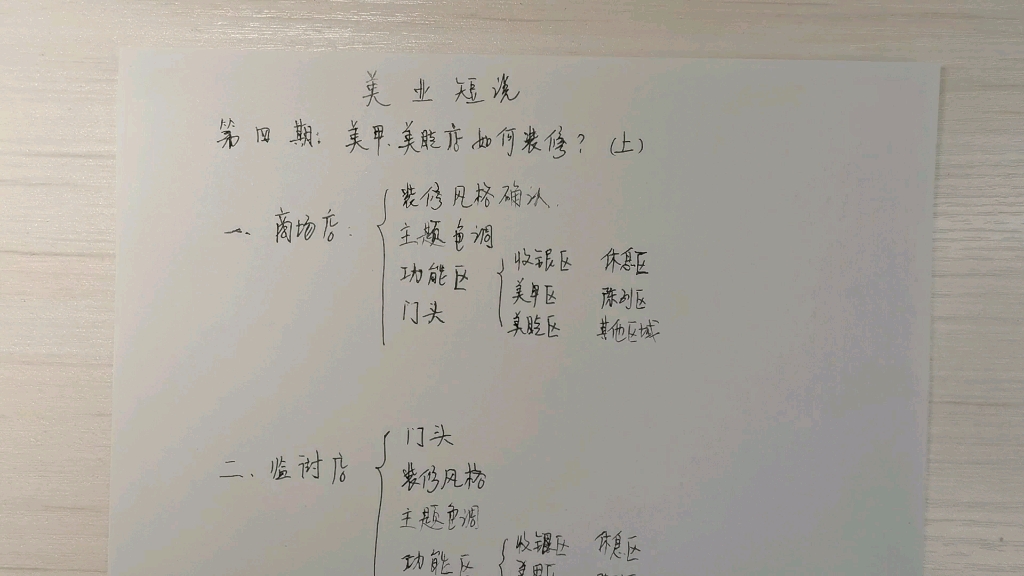 美业短说
第四期：美甲.美睫店如何装修？（上）
一、商场店：
装修风格确认.
主题色调
功能区
收银区 休息区
美甲区 陈列区
美睫区 其他区域
门头
二、临街店
门头
装修风格
主题色调
功能区
收银区 休息区
美甲区